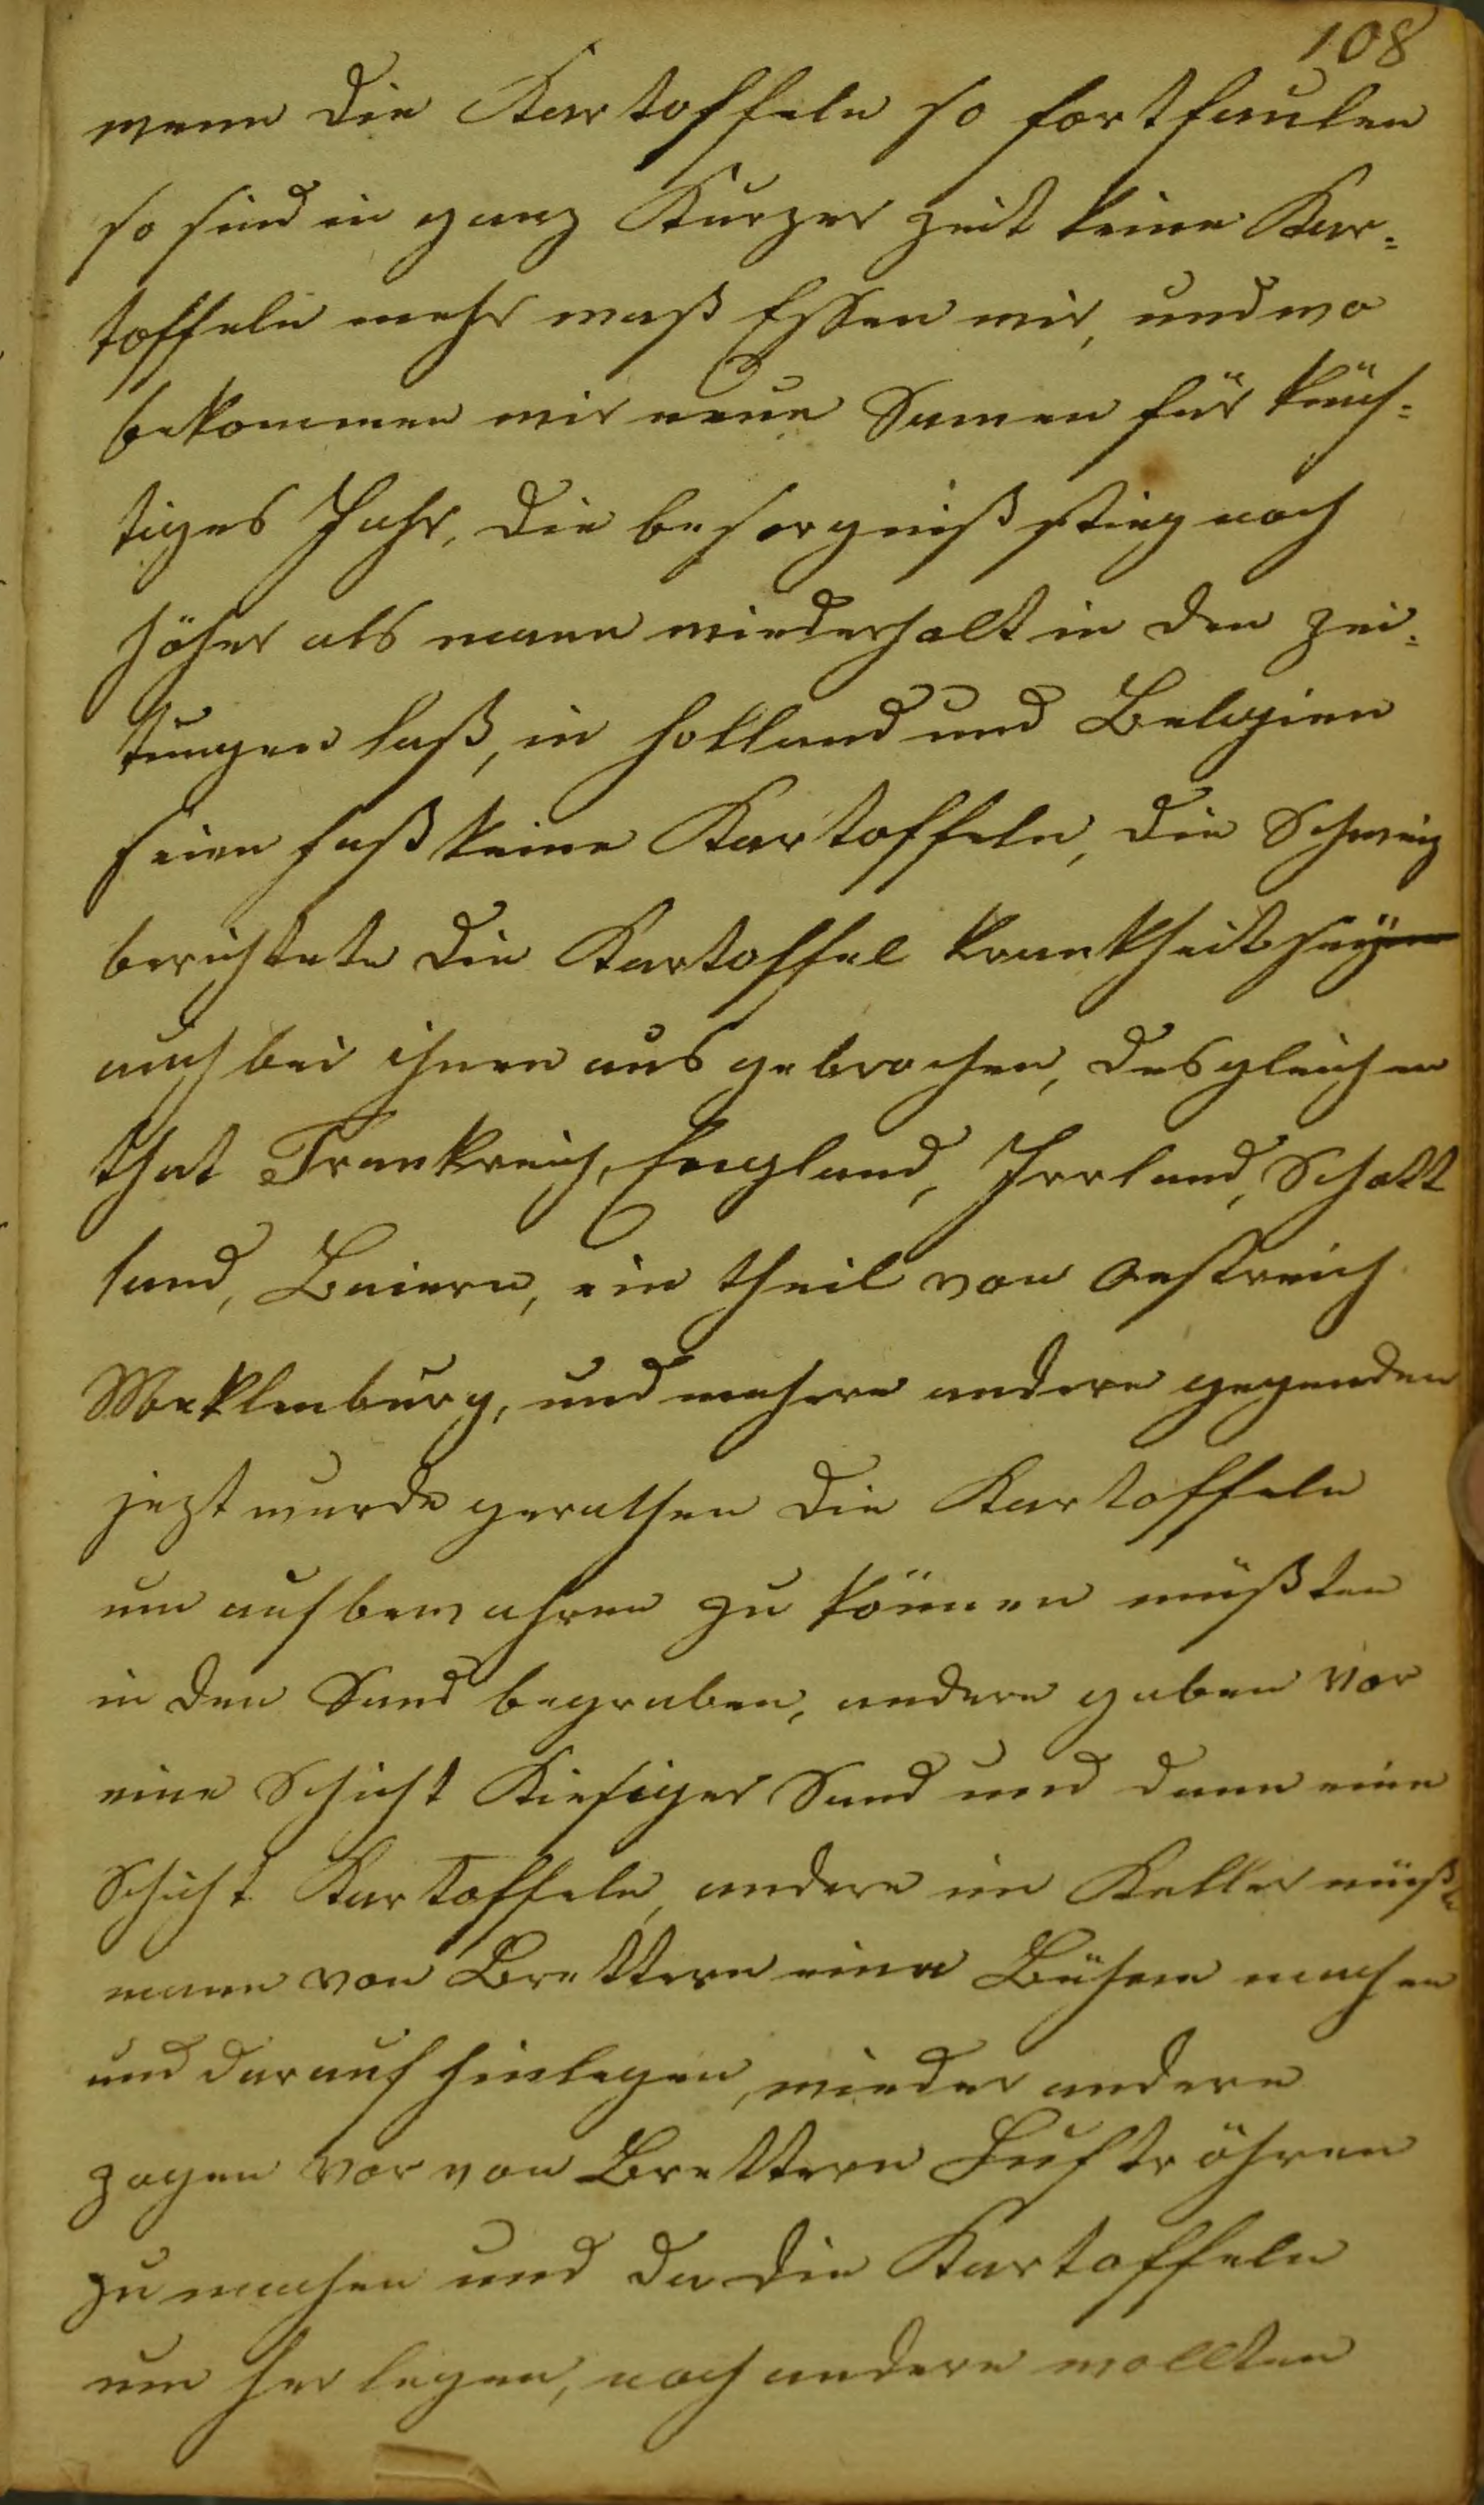 108
wenn die Kartoffeln so fortfaulen
so sind in ganz Kurzer zeit keine Kar=
toffeln mehr waß Essen wir, und wo
bekommen wir neue Samen für künf=
tiges Jahr, die besorgniß stieg noch
höher als mann wiederholt in den zei=
tungen laß, in Holland und Belgien
seien fast keine Kartoffeln, die Schweiz
berichtete die Kartoffel krankheit sey
auch bei ihnen aus gebrochen, desgleichen
that Frankreich, England, Irrland, Schott
land, Baiern, ein theil von Oestreich
Meklenburg, und mehere andere gegenden
jezt wurde gerathen die Kartoffeln
um aufbewahren zu können müßten
in den Sand begraben, andere gaben vor
eine Schicht Kiesiger Sand und dann eine
Schicht Kartoffeln, andere im Keller müßte
mann von Brettern eine Bühne machen
und darauf hinlegen, wieder andere
zogen vor von Brettern Luftröhren
zu machen und da die Kartoffeln
um her legen, noch andere wollten